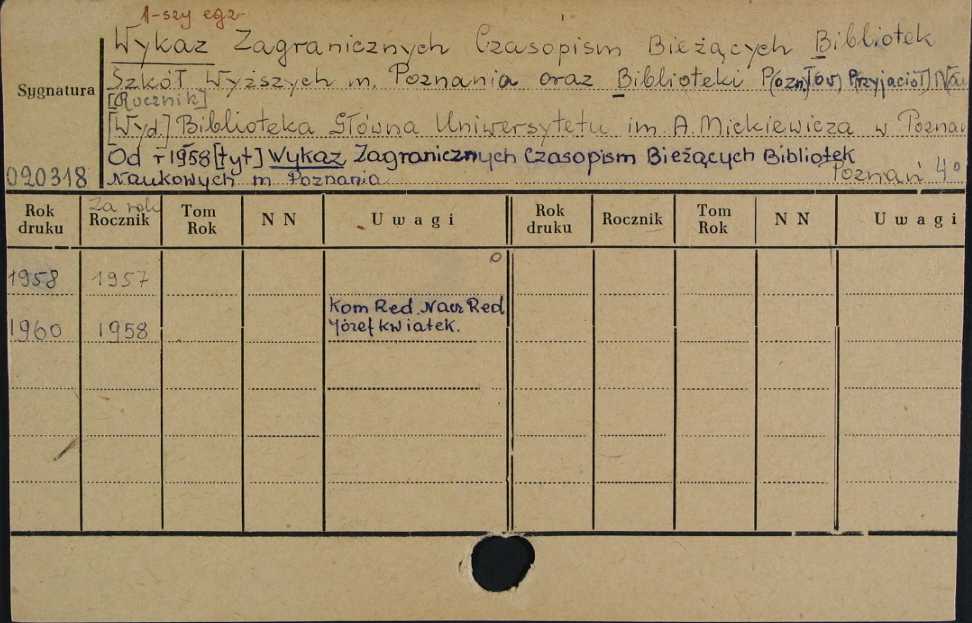 1-szy egz.
Wykaz Zagranicznych Czasopism Bieżących Bibliotek
Szkół Wyższych m. Poznania oraz Biblioteki P(ozn) Tow) Przyjaciół) Nau
[Rocznik]
Sygnatura
[Wyd.] Biblioteka Główna Uniwersytetu im A. Mickiewicza w Poznan
Od r 1958 [tyt] Wykaz Zagranicznych Czasopism Bieżących Bibliotek
090318 Naukowych m Poznania Poznań 4°
Rok druku Za rok Rocznik Tom Rok N N Uwagi Rok druku Rocznik Tom Rok N N Uwagi
1958 1957
Kom Red. Nacz Red
1960 1958 Józef kwiatek.